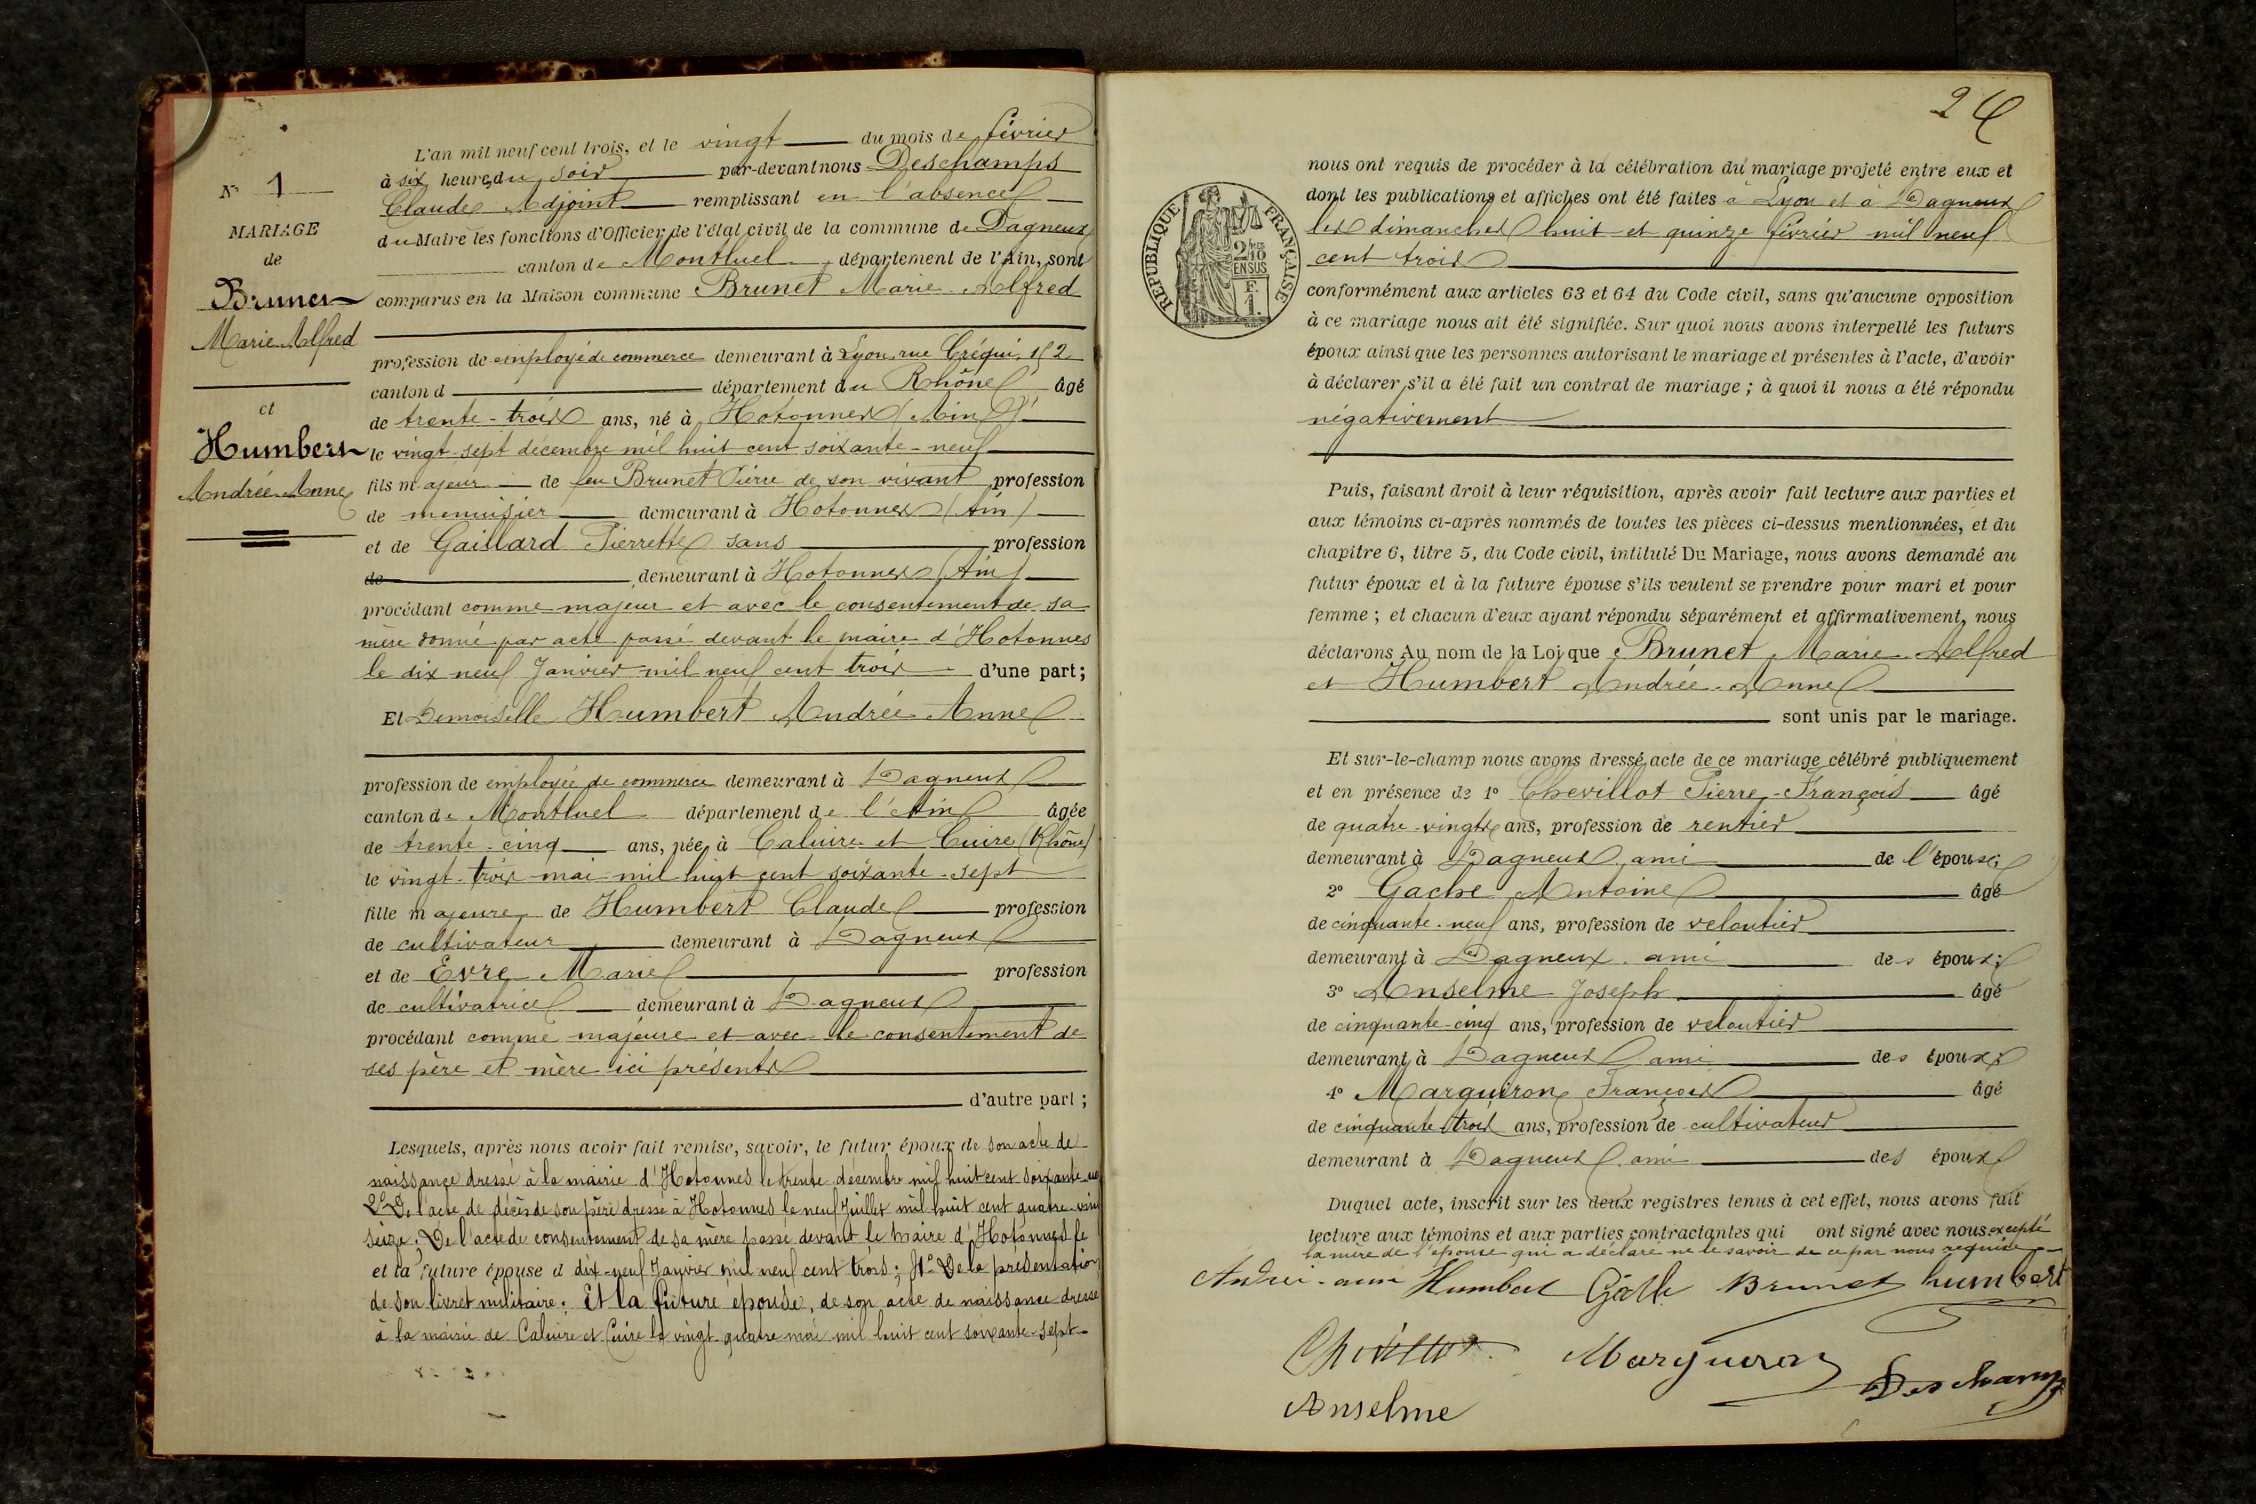 N° 1
MARIAGE
de
Brunet
Marie Alfred
et
Humbert
Andrée Anne
L'an mil neuf cent trois, et le vingt du mois de février
à six heures du soir par-devant nous Deschamps
Claude Adjoint remplissant en l'absence
du Maire les fonctions d'Officier de l'état civil de la commune de Dagneux
canton de Montluel, département de l'Ain, sont
comparus en la Maison commune Brunet Marie Alfred
profession de employé de commerce demeurant à Lyon, rue Créqui, 152
canton d département du Rhône âgé
de trente-trois ans, né à Hotonnes (Ain)
le vingt-sept décembre mil huit cent soixante-neuf
fils majeur de feu Brunet Pierre de son vivant profession
de menuisier demeurant à Hotonnes (Ain)
et de Gaillard Pierrette sans profession
de demeurant à Hotonnes (Ain)
procédant comme majeur et avec le consentement de sa
mère donné par acte passé devant le maire d'Hotonnes
le dix neuf Janvier mil neuf cent trois d'une part;
Et Demoiselle Humbert Andrée Anne
profession de employée de commerce demeurant à Dagneux
canton de Montluel département de l'Ain âgée
de trente-cinq ans, née à Caluire et Cuire (Rhône)
le vingt-trois mai mil huit cent soixante-sept
fille majeure de Humbert Claude profession
de cultivateur demeurant à Dagneux
et de Evre Marie profession
de cultivatrice demeurant à Dagneux
procédant comme majeure et avec le consentement de
ses père et mère ici présents
d'autre part;
Lesquels, après nous avoir fait remise, savoir, le futur époux de son acte de
naissance dressé à la mairie d'Hotonnes le trente décembre mil huit cent soixante neuf
2° De l'acte de décès de son père dressé à Hotonnes le neuf Juillet mil huit cent quatre-vingt
seize. De l'acte de consentement de sa mère passé devant le maire d'Hotonnes le
et la future épouse d dix-neuf Janvier mil neuf cent trois; 4° De la présentation
de son livret militaire. Et la future épouse, de son acte de naissance dressé
à la mairie de Caluire et Cuire le vingt-quatre mai mil huit cent soixante-sept
2
nous ont requis de procéder à la célébration du mariage projeté entre eux et
dont les publications et affiches ont été faites à Lyon et à Dagneux
les dimanches huit et quinze février mil neuf
cent trois
RÉPUBLIQUE FRANÇAISE
2/10
EN SUS
F.
1.
conformément aux articles 63 et 64 du Code civil, sans qu'aucune opposition
à ce mariage nous ait été signifiée. Sur quoi nous avons interpellé les futurs
époux ainsi que les personnes autorisant le mariage et présentes à l'acte, d'avoir
à déclarer s'il a été fait un contrat de mariage; à quoi il nous a été répondu
négativement
Puis, faisant droit à leur réquisition, après avoir fait lecture aux parties et
aux témoins ci-après nommés de toutes les pièces ci-dessus mentionnées, et du
chapitre 6, titre 5, du Code civil, intitulé Du Mariage, nous avons demandé au
futur époux et à la future épouse s'ils veulent se prendre pour mari et pour
femme; et chacun d'eux ayant répondu séparément et affirmativement, nous
déclarons Au nom de la Loi que Brunet Marie Alfred
et Humbert Andrée-Anne
sont unis par le mariage.
Et sur-le-champ nous avons dressé acte de ce mariage célébré publiquement
et en présence de 1° Chevillot Pierre-François âgé
de quatre-vingts ans, profession de rentier
demeurant à Dagneux ami de l'épouse;
2° Gache Antoine âgé
de cinquante-neuf ans, profession de veloutier
demeurant à Dagneux ami des époux;
3° Anselme Joseph âgé
de cinquante-cinq ans, profession de veloutier
demeurant à Dagneux ami des époux;
4° Marguiron François âgé
de cinquante trois ans, profession de cultivateur
demeurant à Dagneux ami des époux
Duquel acte, inscrit sur les deux registres tenus à cet effet, nous avons fait
lecture aux témoins et aux parties contractantes qui ont signé avec nous excepté
la mère de l'épouse qui a déclaré ne le savoir de ce par nous requise
Andrée-anne Humbert Brunet humbert
Marguiron Deschamps
Anselme